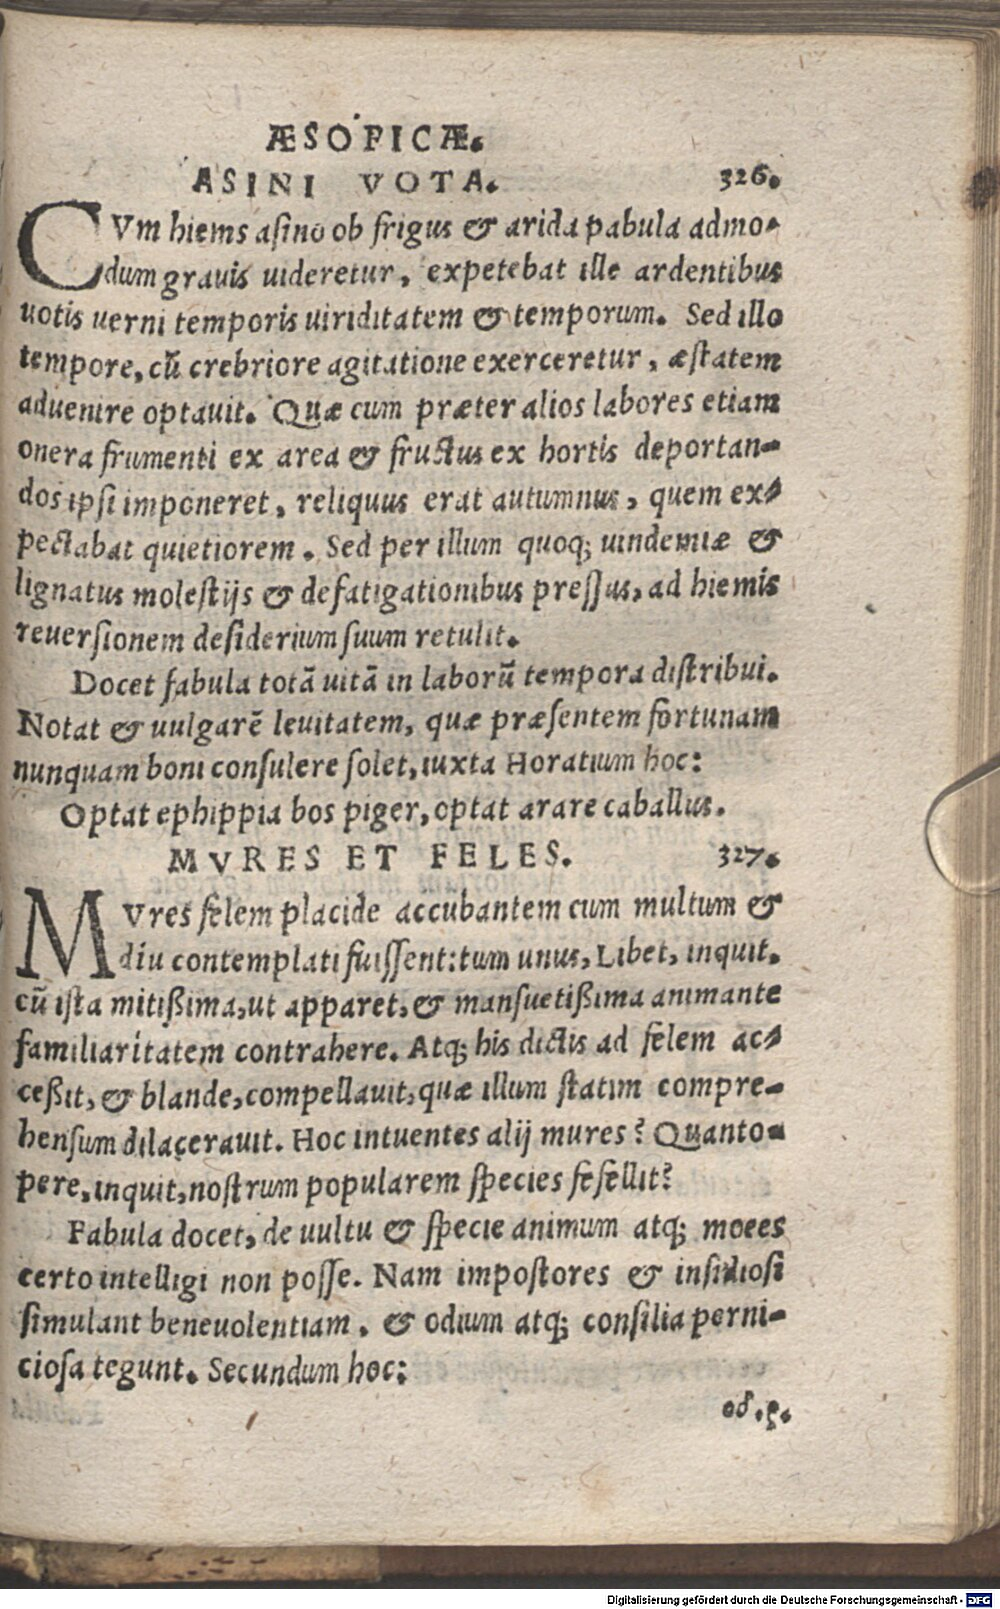 ÆSOPICÆ.
ASINI VOTA. 326.
CVm hiems asino ob frigus & arida pabula admo-
dum gravis uideretur, expetebat ille ardentibus
uotis uerni temporis uiriditatem & temporum. Sed illo
tempore, cũ crebriore agitatione exerceretur, æstatem
aduenire optauit. Quæ cum præter alios labores etiam
onera frumenti ex area & fructus ex hortis deportan-
dos ipsi imponeret, reliquus erat autumnus, quem ex-
pectabat quietiorem. Sed per illum quoq; uindemiæ &
lignatus molestijs & defatigationibus pressus, ad hiemis
reuersionem desiderium suum retulit.
Docet fabula totã uitã in laborũ tempora distribui.
Notat & uulgarẽ leuitatem, quæ præsentem fortunam
nunquam boni consulere solet, iuxta Horatium hoc:
Optat ephippia bos piger, optat arare caballus.
MVRES ET FELES. 327.
MVres felem placide accubantem cum multum &
diu contemplati fuissent: tum unus, Libet, inquit.
cũ ista mitißima, ut apparet, & mansuetißima animante
familiaritatem contrahere. Atq; his dictis ad felem ac-
ceßit, & blande, compellauit, quæ illum statim compre-
hensum dilacerauit. Hoc intuentes alij mures? Quanto-
pere, inquit, nostrum popularem species fefellit?
Fabula docet, de uultu & specie animum atq; moees
certo intelligi non posse. Nam impostores & insidiosi
simulant beneuolentiam, & odium atq; consilia perni-
ciosa tegunt. Secundum hoc:
οδ.ρ.
Digitalisierung gefördert durch die Deutsche Forschungsgemeinschaft - DFG